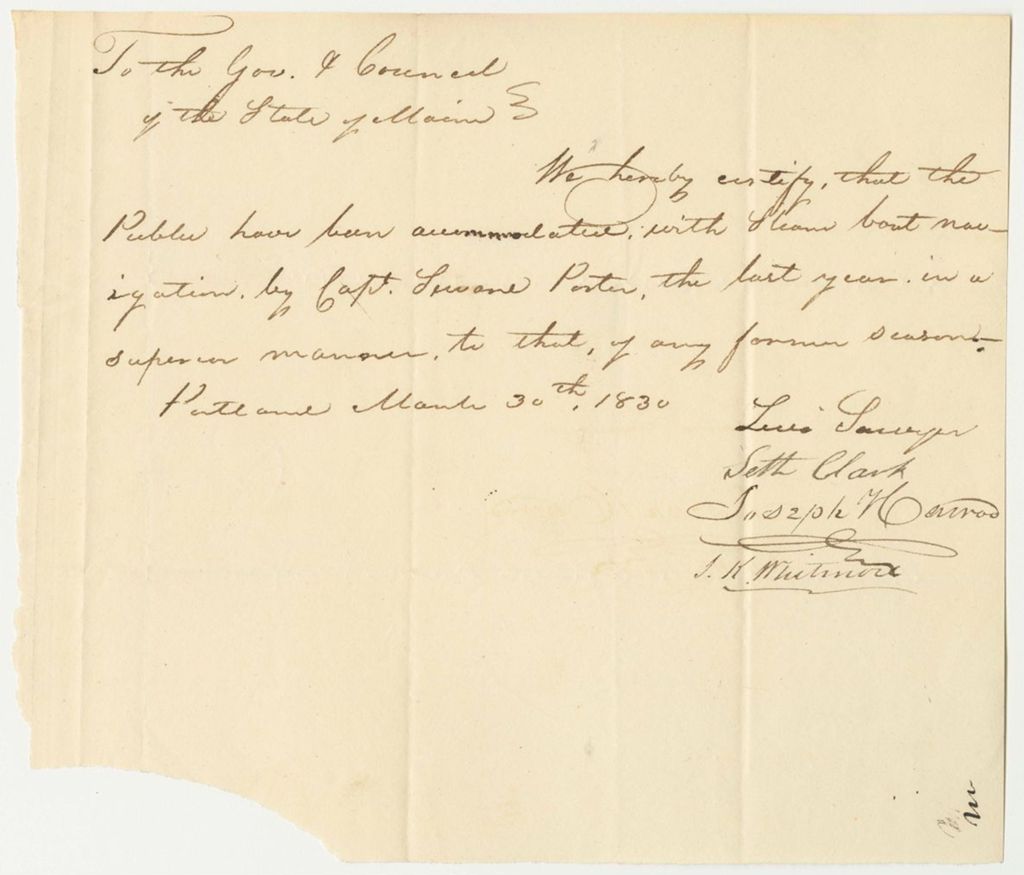 To the Gov. & Council
of the State of Maine
We hereby certify, that the
Public have been accommodated, with Steam boat nav-
igation, by Capt. Seward Porter, the last year. in a
superior manner, to that, of any former season.
Portland March 30th, 1830
Levi Sawyer
Seth Clark
Joseph Harrod
J. K. Whitmore